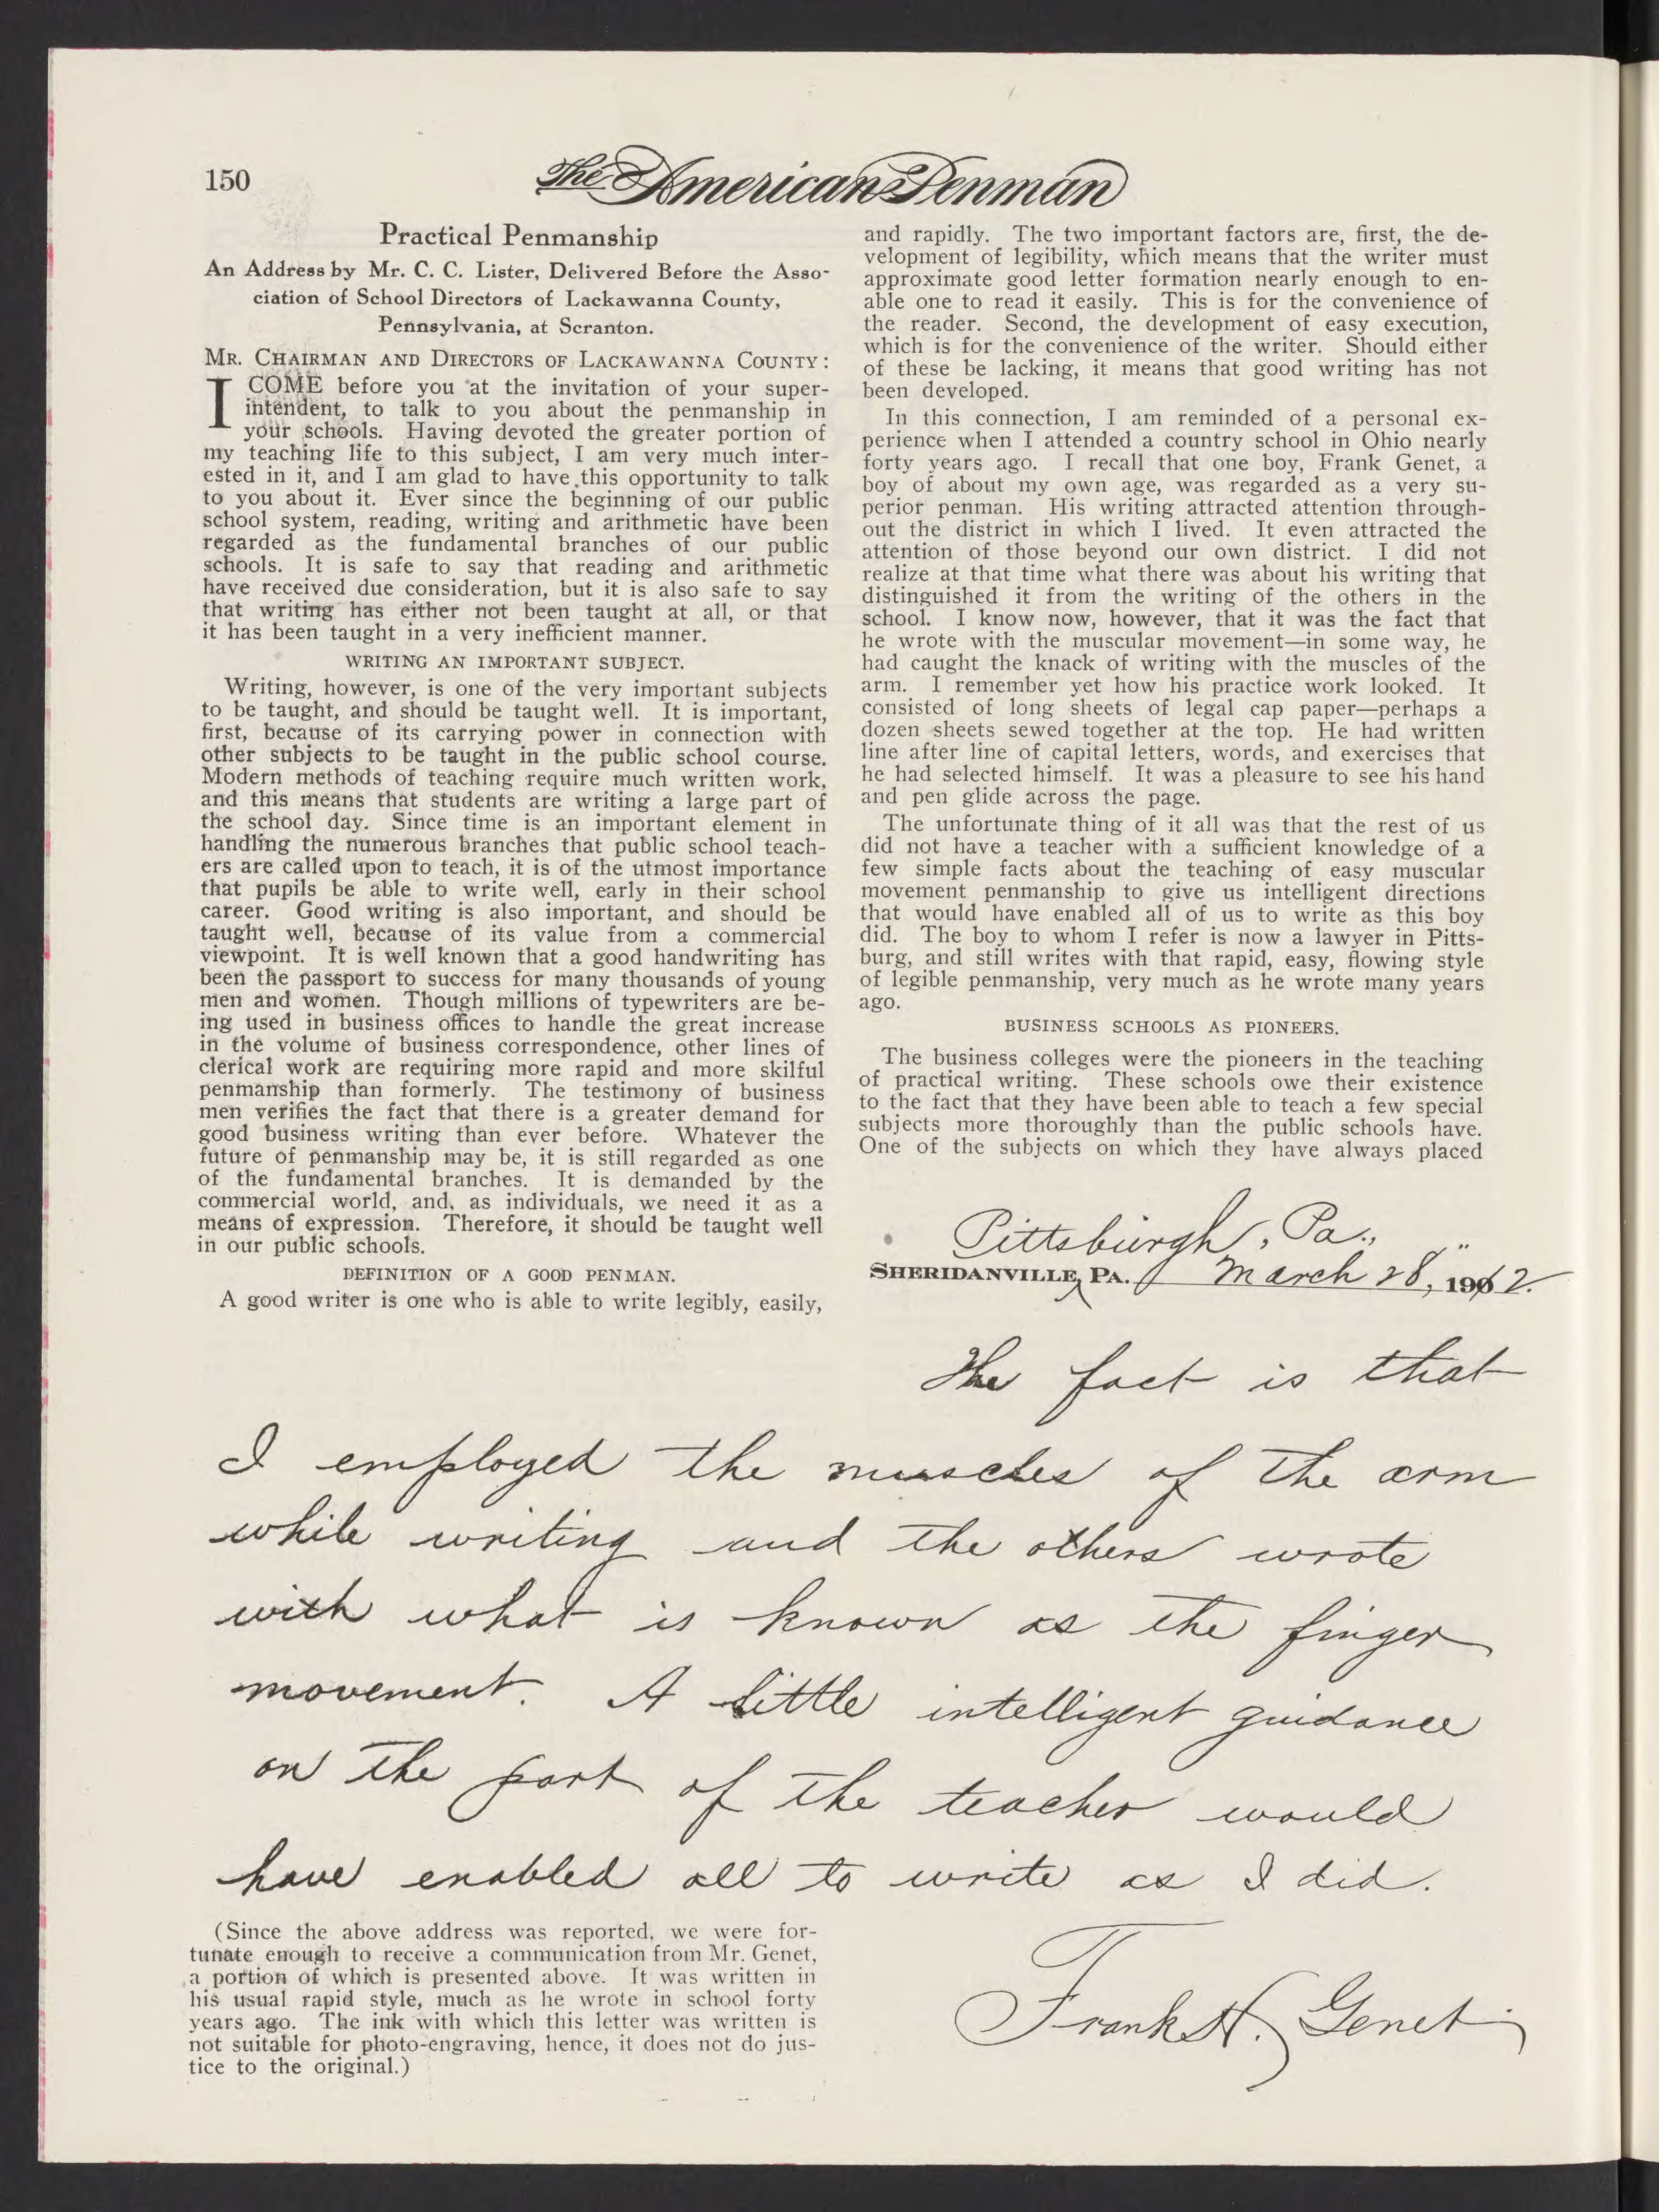 150
The American Penman
Practical Penmanship
An Address by Mr. C. C. Lister, Delivered Before the Asso-
ciation of School Directors of Lackawanna County,
Pennsylvania, at Scranton.
MR. CHAIRMAN AND DIRECTORS OF LACKAWANNA COUNTY:
I COME before you at the invitation of your super-
intendent, to talk to you about the penmanship in
your schools. Having devoted the greater portion of
my teaching life to this subject, I am very much inter-
ested in it, and I am glad to have this opportunity to talk
to you about it. Ever since the beginning of our public
school system, reading, writing and arithmetic have been
regarded as the fundamental branches of our public
schools. It is safe to say that reading and arithmetic
have received due consideration, but it is also safe to say
that writing has either not been taught at all, or that
it has been taught in a very inefficient manner.
WRITING AN IMPORTANT SUBJECT.
Writing, however, is one of the very important subjects
to be taught, and should be taught well. It is important,
first, because of its carrying power in connection with
other subjects to be taught in the public school course.
Modern methods of teaching require much written work,
and this means that students are writing a large part of
the school day. Since time is an important element in
handling the numerous branches that public school teach-
ers are called upon to teach, it is of the utmost importance
that pupils be able to write well, early in their school
career. Good writing is also important, and should be
taught well, because of its value from a commercial
viewpoint. It is well known that a good handwriting has
been the passport to success for many thousands of young
men and women. Though millions of typewriters are be-
ing used in business offices to handle the great increase
in the volume of business correspondence, other lines of
clerical work are requiring more rapid and more skilful
penmanship than formerly. The testimony of business
men verifies the fact that there is a greater demand for
good business writing than ever before. Whatever the
future of penmanship may be, it is still regarded as one
of the fundamental branches. It is demanded by the
commercial world, and, as individuals, we need it as a
means of expression. Therefore, it should be taught well
in our public schools.
DEFINITION OF A GOOD PENMAN.
A good writer is one who is able to write legibly, easily,
and rapidly. The two important factors are, first, the de-
velopment of legibility, which means that the writer must
approximate good letter formation nearly enough to en-
able one to read it easily. This is for the convenience of
the reader. Second, the development of easy execution,
which is for the convenience of the writer. Should either
of these be lacking, it means that good writing has not
been developed.
In this connection, I am reminded of a personal ex-
perience when I attended a country school in Ohio nearly
forty years ago. I recall that one boy, Frank Genet, a
boy of about my own age, was regarded as a very su-
perior penman. His writing attracted attention through-
out the district in which I lived. It even attracted the
attention of those beyond our own district. I did not
realize at that time what there was about his writing that
distinguished it from the writing of the others in the
school. I know now, however, that it was the fact that
he wrote with the muscular movement—in some way, he
had caught the knack of writing with the muscles of the
arm. I remember yet how his practice work looked. It
consisted of long sheets of legal cap paper—perhaps a
dozen sheets sewed together at the top. He had written
line after line of capital letters, words, and exercises that
he had selected himself. It was a pleasure to see his hand
and pen glide across the page.
The unfortunate thing of it all was that the rest of us
did not have a teacher with a sufficient knowledge of a
few simple facts about the teaching of easy muscular
movement penmanship to give us intelligent directions
that would have enabled all of us to write as this boy
did. The boy to whom I refer is now a lawyer in Pitts-
burg, and still writes with that rapid, easy, flowing style
of legible penmanship, very much as he wrote many years
ago.
BUSINESS SCHOOLS AS PIONEERS.
The business colleges were the pioneers in the teaching
of practical writing. These schools owe their existence
to the fact that they have been able to teach a few special
subjects more thoroughly than the public schools have.
One of the subjects on which they have always placed
Pittsburgh, Pa.,
SHERIDANVILLE, PA. March 28, 1912.
The fact is that
I employed the muscles of the arm
while writing and the others wrote
with what is known as the finger
movement. A little intelligent guidance
on the part of the teacher would
have enabled all to write as I did.
Frank H. Genet
(Since the above address was reported, we were for-
tunate enough to receive a communication from Mr. Genet,
a portion of which is presented above. It was written in
his usual rapid style, much as he wrote in school forty
years ago. The ink with which this letter was written is
not suitable for photo-engraving, hence, it does not do jus-
tice to the original.)